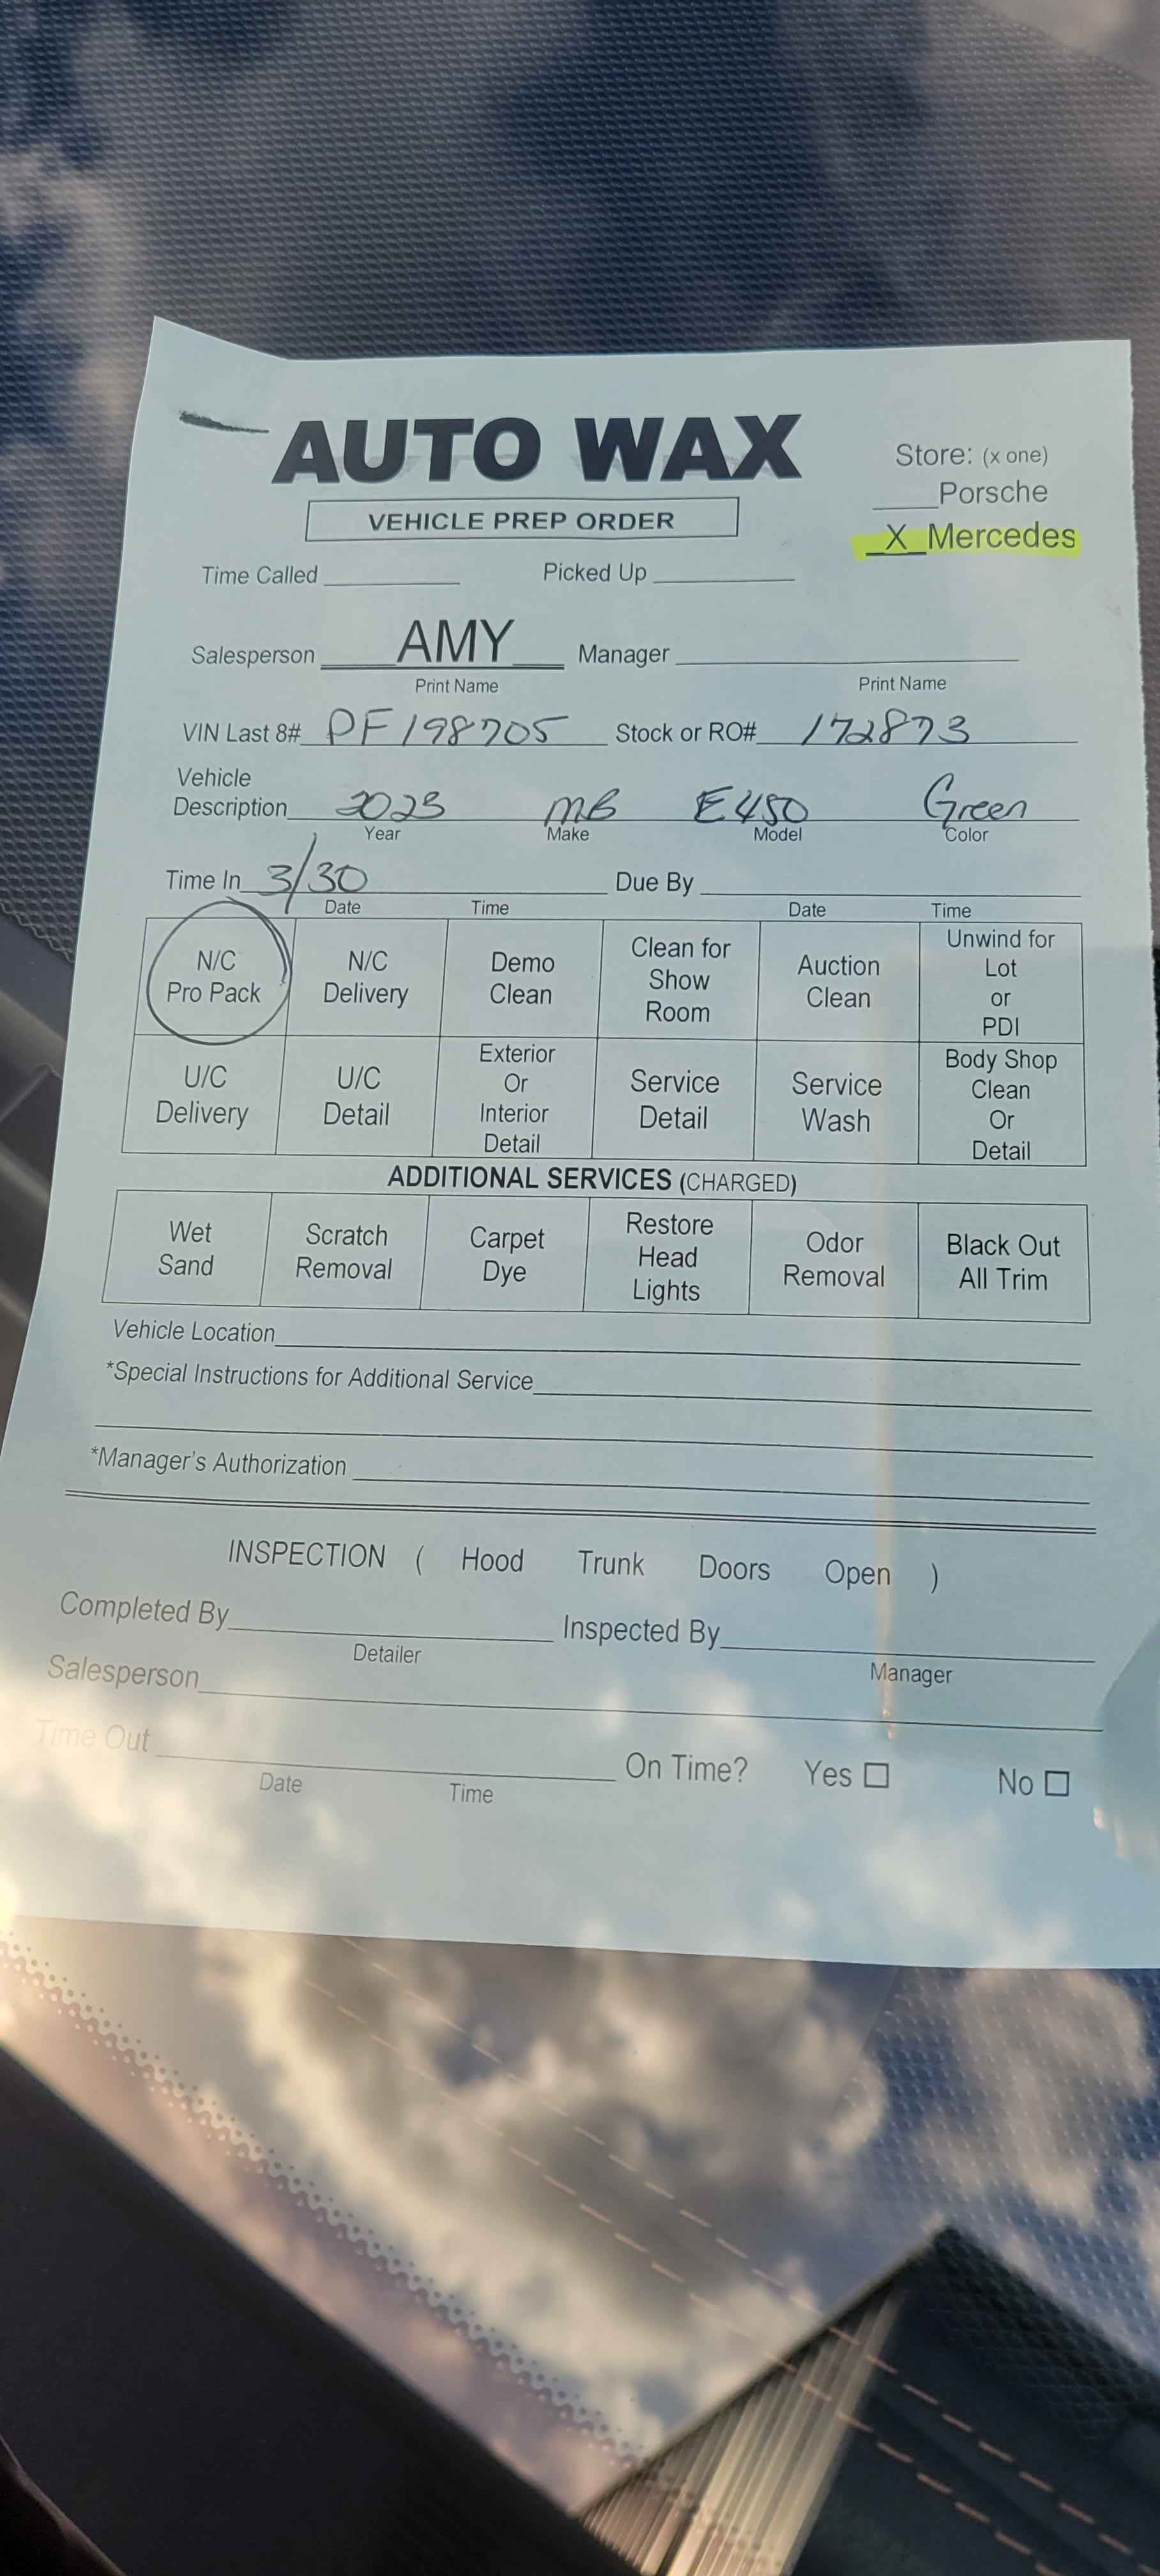 AUTO WAX
VEHICLE PREP ORDER
Store: (x one)
____Porsche
_X_Mercedes
Time Called__________ Picked Up__________
Salesperson____AMY____ Manager__________
Print Name Print Name
VIN Last 8# PF198705 Stock or RO# 172873
Vehicle
Description 2023 MB E450 Green
Year Make Model Color
Time In 3/30 Due By__________
Date Time Date Time
N/C Pro Pack
N/C Delivery
Demo Clean
Clean for Show Room
Auction Clean
Unwind for Lot or PDI
U/C Delivery
U/C Detail
Exterior Or Interior Detail
Service Detail
Service Wash
Body Shop Clean Or Detail
ADDITIONAL SERVICES (CHARGED)
Wet Sand
Scratch Removal
Carpet Dye
Restore Head Lights
Odor Removal
Black Out All Trim
Vehicle Location__________
*Special Instructions for Additional Service__________
*Manager's Authorization__________
INSPECTION ( Hood Trunk Doors Open )
Completed By__________ Inspected By__________
Detailer Manager
Salesperson__________
Time Out__________ On Time? Yes ☐ No ☐
Date Time